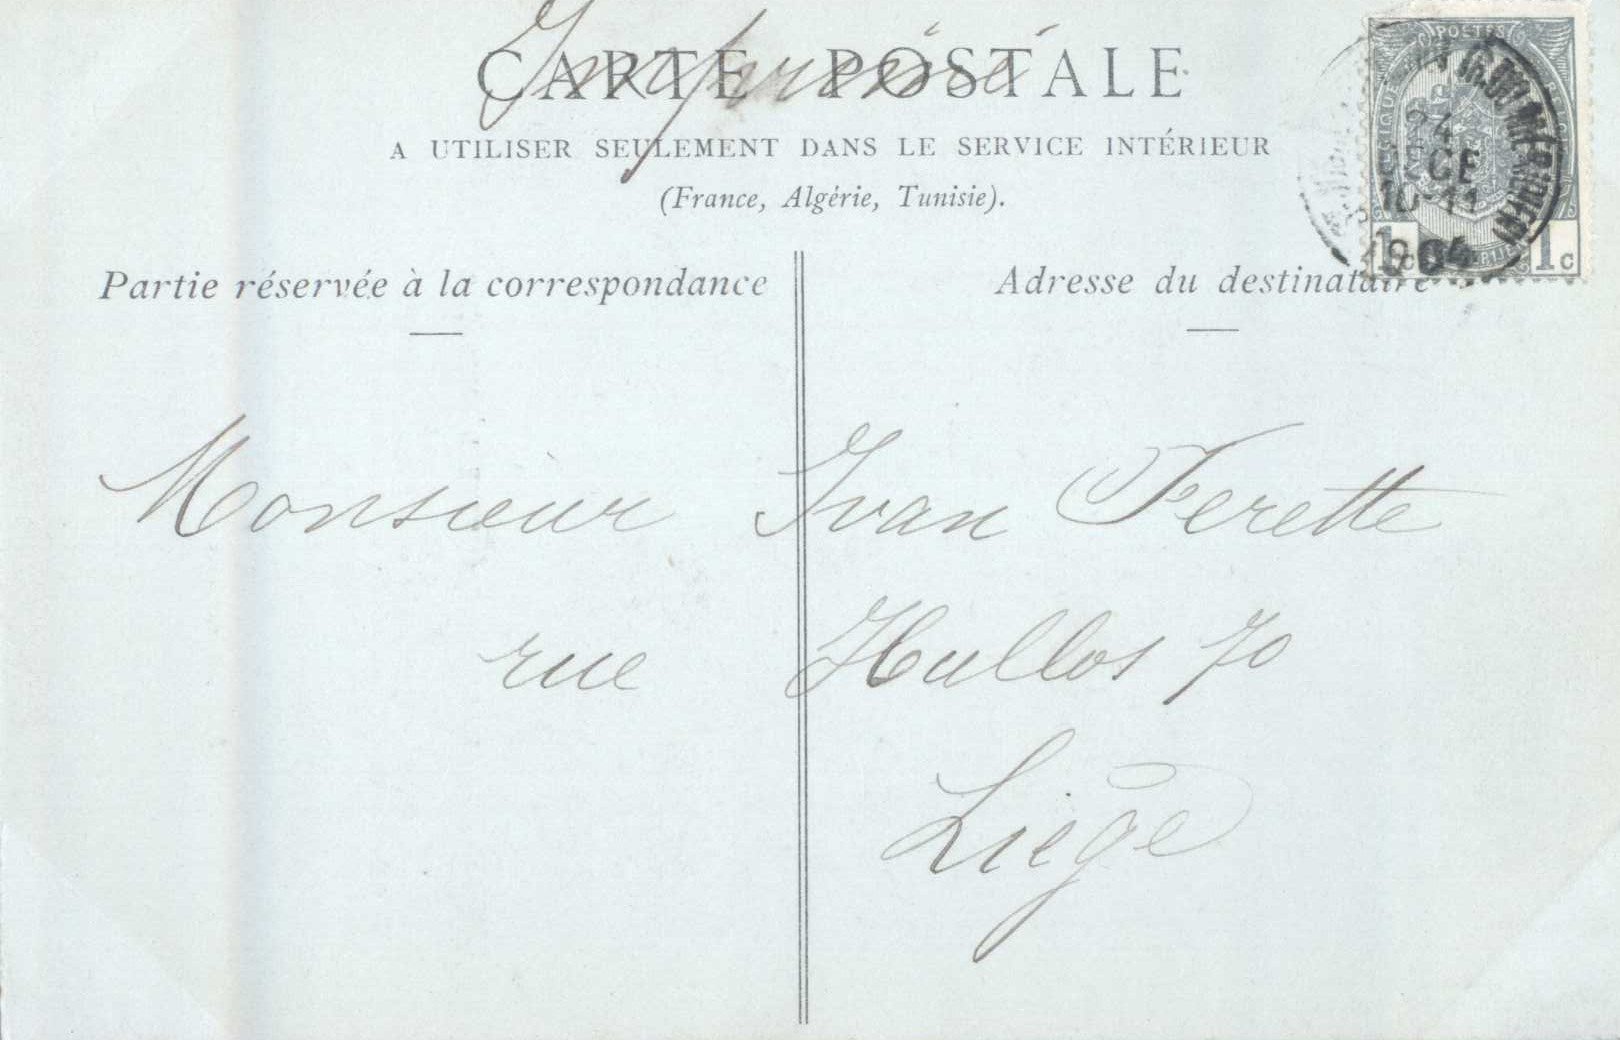 Imprimé
CARTE POSTALE
A UTILISER SEULEMENT DANS LE SERVICE INTÉRIEUR
(France, Algérie, Tunisie).
Partie réservée à la correspondance
Adresse du destinataire
POSTES
24
10-11
1904
1c
1c
Monsieur Ivan Ferette
rue Hullos 70
Liège